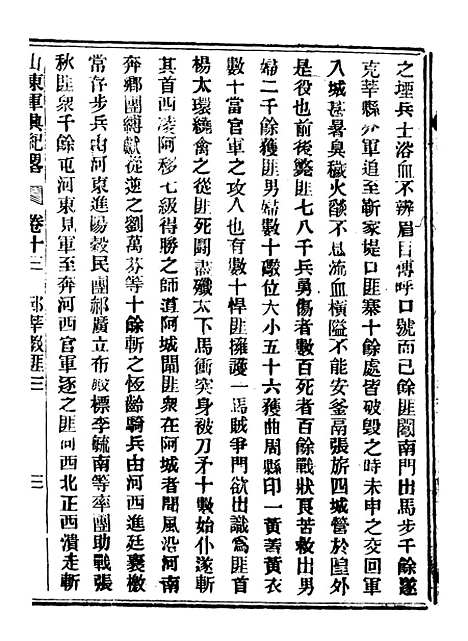 之堙兵士浴血不辨眉目傳呼口號而已餘匪闖南門出馬步千餘遂
克莘縣外軍追至靳家堤口匪寨十餘處皆破毀之時未申之交回軍
入城甚暑臭穢火燄不息流血橫隘不能安釜鬲張旂四城營於隍外
是役也前後斃匪七八千兵勇傷者數百死者百餘戰狀艮苦救出男
婦二千餘獲匪男婦數十礮位大小五十六獲曲周縣印一黃蓋黃衣
數十當官軍之攻入也有數十悍匪擁護一馬賊爭門欲出識爲匪首
楊太環繞禽之從匪死鬬盡殲太下馬衝突身被刀矛十數始仆遂斬
其首西凌阿移七級得勝之師道阿城聞匪衆在阿城者聞風沿河南
奔鄉團縛獻從逆之劉萬芬等十餘斬之恆齡騎兵由河西進廷襄檄
當春步兵由河東進陽穀民團郝廣立布政標李毓南等率團助戰張
秋匪衆千餘屯河東見軍至奔河西官軍逐之匪向西北正西潰走斬
山東軍興紀畧 卷十三 教匪三 三